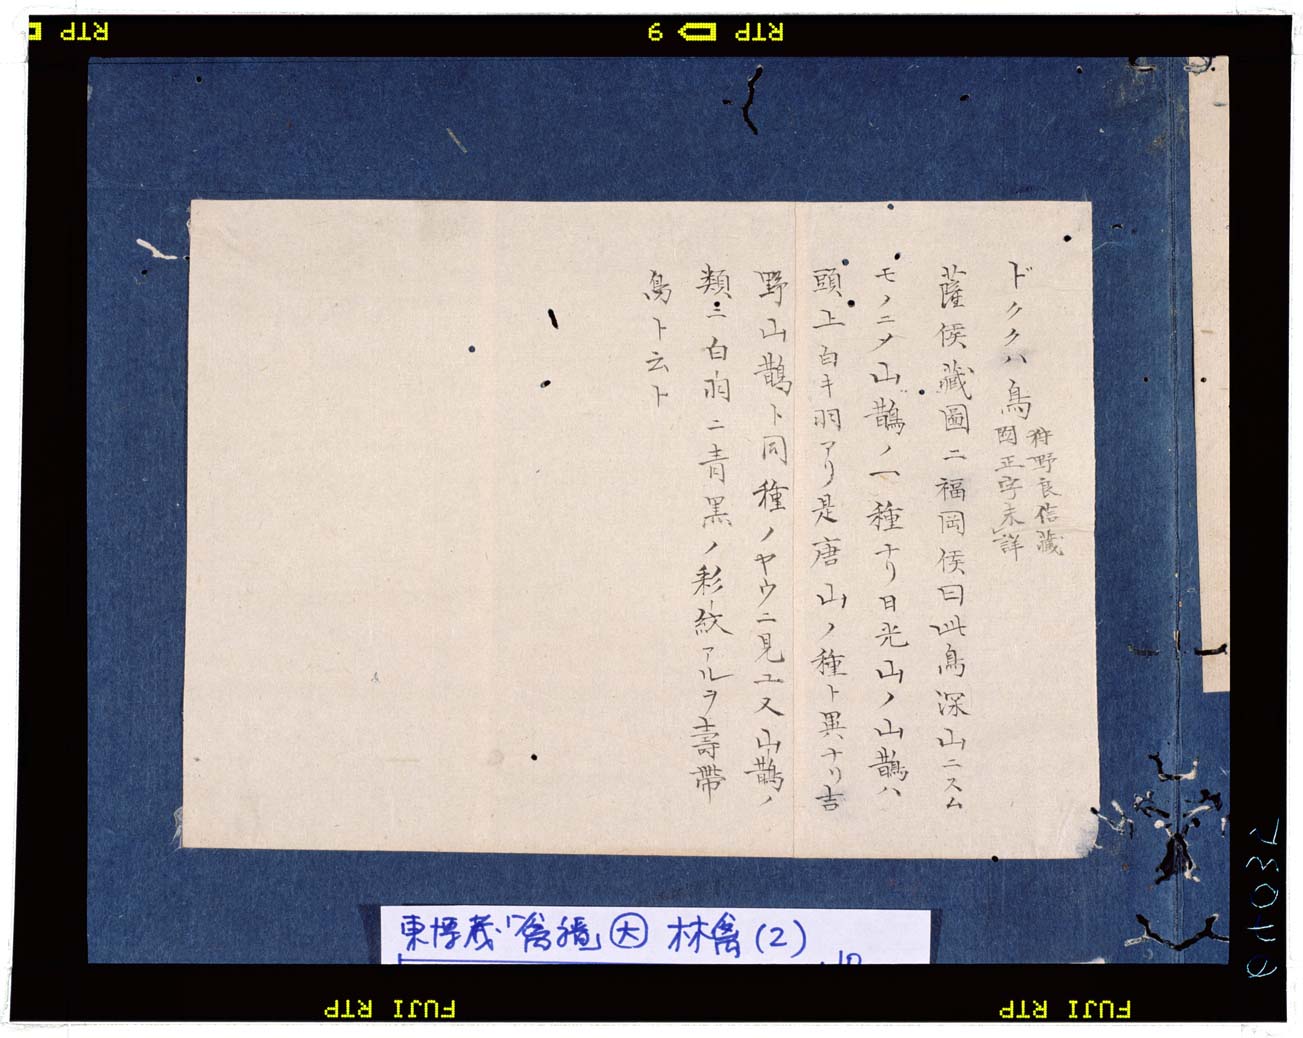 RTP
9
RTP
ドククハ鳥
狩野良信藏
圖正字未詳
薩侯藏圖ニ福岡侯曰此鳥深山ニスム
モノニメ山鵲ノ一種ナリ日光山ノ山鵲ハ
頭上白キ羽アリ是唐山ノ種ト異ナリ吉
野山鵲ト同種ノヤウニ見ユ又山鵲ノ
類ニ白羽ニ青黒ノ彩紋アルヲ壽帶
鳥ト云ト
東博蔵「禽譜」 大 林禽(2)
FUJI RTP
FUJI RTP